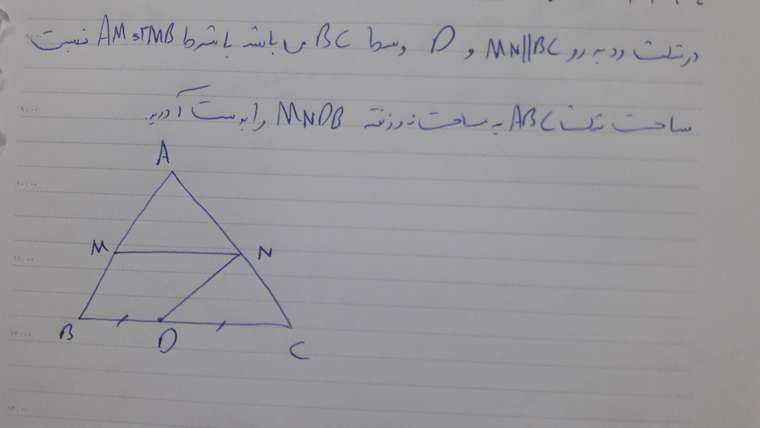 در مثلث روبه رو MN||BC و D وسط BC می باشد باشرط AM=2MB نسبت
مساحت مثلث ABC به مساحت ذوزنقه MNDB را به دست آورید.
A
M N
B D C